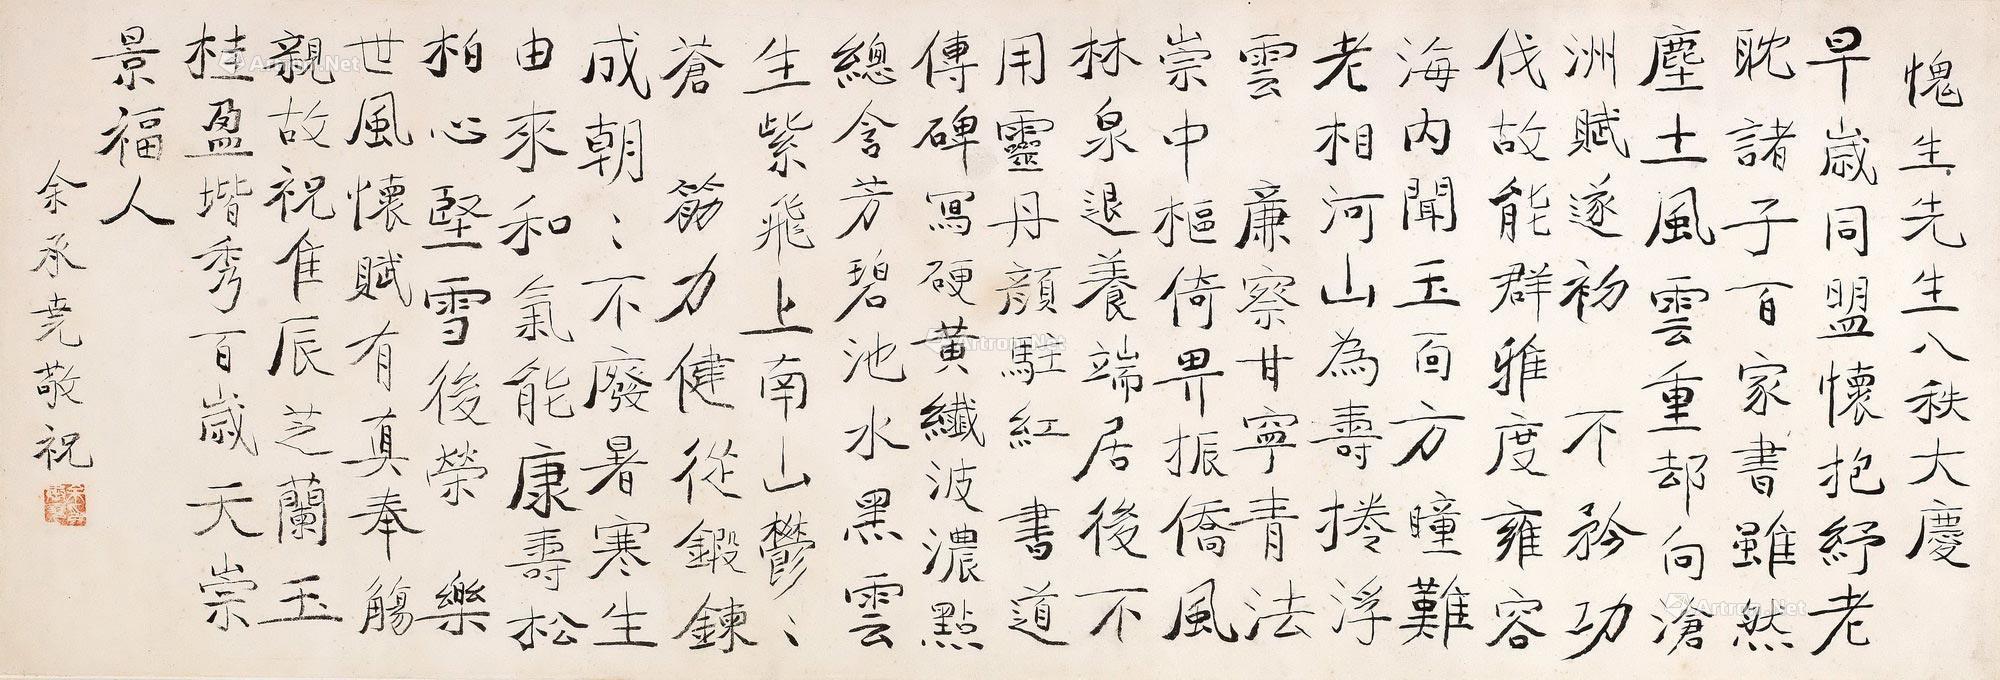 愧生先生八秩大慶
早歲同盟懷抱紓老
耽諸子百家書雖然
塵土風雲重却向滄
洲賦遂初 不矜功
伐故能群雅度雍容
海內聞玉面方瞳難
老相河山為壽捲浮
雲 廉察甘寧青法
崇中樞倚畀振僑風
林泉退養端居後不
用靈丹顏駐紅 書道
傳碑寫硬黃纖波濃點
總含芳碧池水黑雲
生紫飛上南山鬱〻
蒼 筋力健從鍛鍊
成朝〻不廢暑寒生
由來和氣能康壽松
柏心堅雪後榮 樂
世風懷賦有真奉觴
親故祝隹辰芝蘭玉
桂盈堦秀百歲天崇
景福人
余承堯敬祝
Artron.Net
Artron.Net
Artron.Net